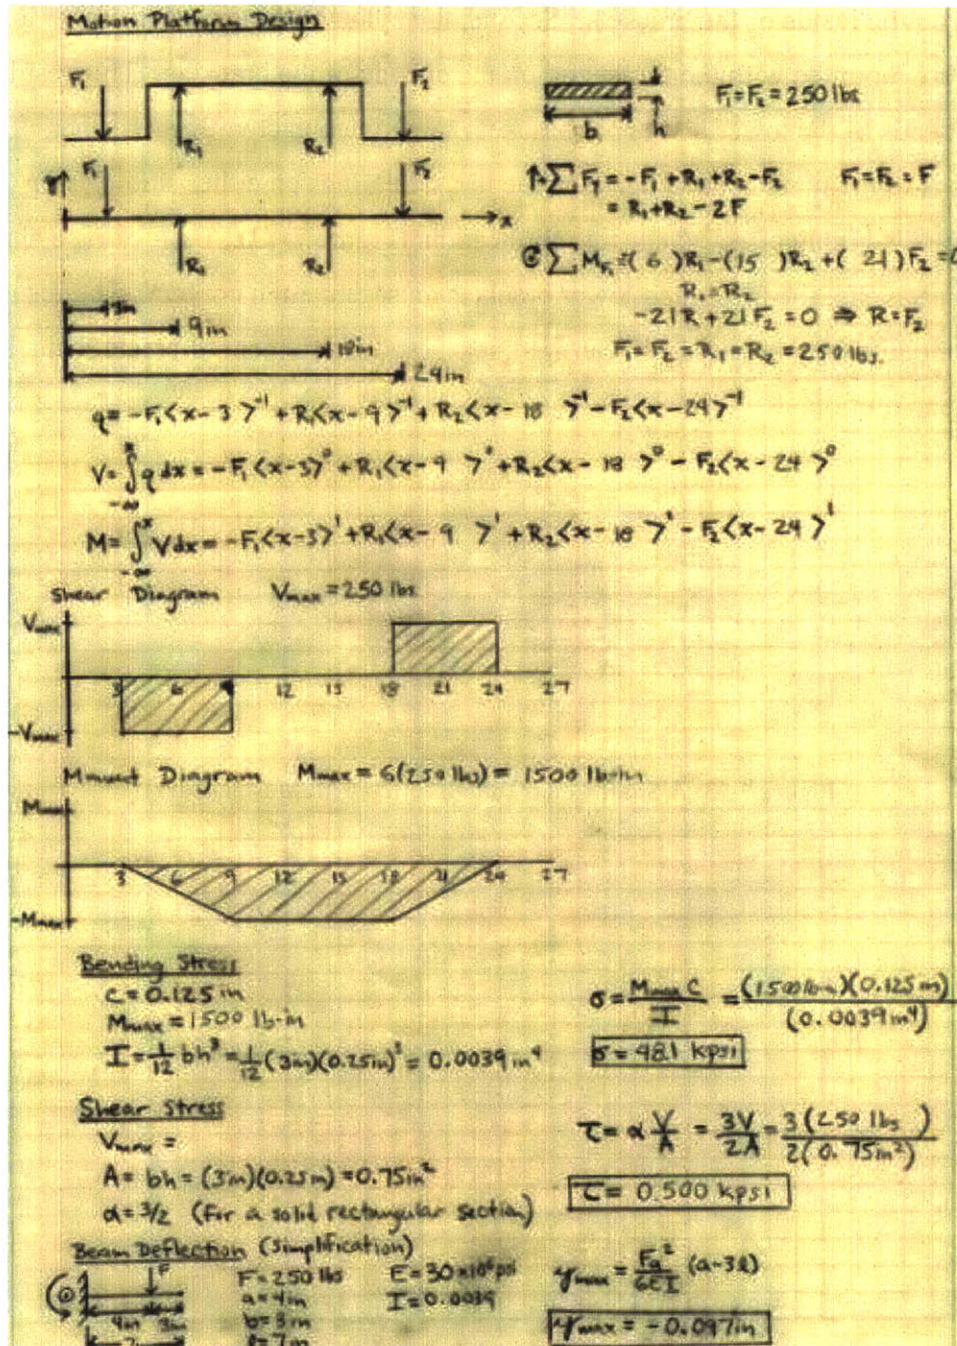 Motion Platform Design
F₁ F₂
R₁ R₂
b h F₁=F₂=250 lbs
y F₁ F₂ x
R₁ R₂
↑ΣFy = -F₁+R₁+R₂-F₂ F₁=F₂=F
= R₁+R₂-2F
ΣM_F₁=(6)R₁-(15)R₂+(21)F₂=0
R₁=R₂
-21R+21F₂=0 ⇒ R=F₂
F₁=F₂=R₁=R₂=250 lbs.
3in
9in
18in
24in
q=-F₁<x-3>⁻¹+R₁<x-9>⁻¹+R₂<x-18>⁻¹-F₂<x-24>⁻¹
V=∫₋∞ˣ q dx=-F₁<x-3>⁰+R₁<x-9>⁰+R₂<x-18>⁰-F₂<x-24>⁰
M=∫₋∞ˣ Vdx=-F₁<x-3>¹+R₁<x-9>¹+R₂<x-18>¹-F₂<x-24>¹
Shear Diagram Vmax=250 lbs
Vmax
3 6 9 12 15 18 21 24 27
-Vmax
Moment Diagram Mmax=6(250 lbs)=1500 lb-in
Mmax
3 6 9 12 15 18 21 24 27
-Mmax
Bending Stress
C=0.125 in
Mmax=1500 lb-in
I=1/12 bh³=1/12(3in)(0.25in)³=0.0039 in⁴
σ=Mmax C/I=(1500 lb-in)(0.125 in)/(0.0039 in⁴)
σ=48.1 kpsi
Shear Stress
Vmax=
A=bh=(3in)(0.25in)=0.75in²
α=3/2 (for a solid rectangular section)
τ=α V/A=3V/2A=3(250 lbs)/2(0.75in²)
τ=0.500 kpsi
Beam Deflection (simplification)
F
4in 3in
7
F=250 lbs E=30×10⁶psi
a=4in I=0.0039
b=3in
l=7in
ymax=Fa²/6EI (a-3l)
ymax=-0.097in